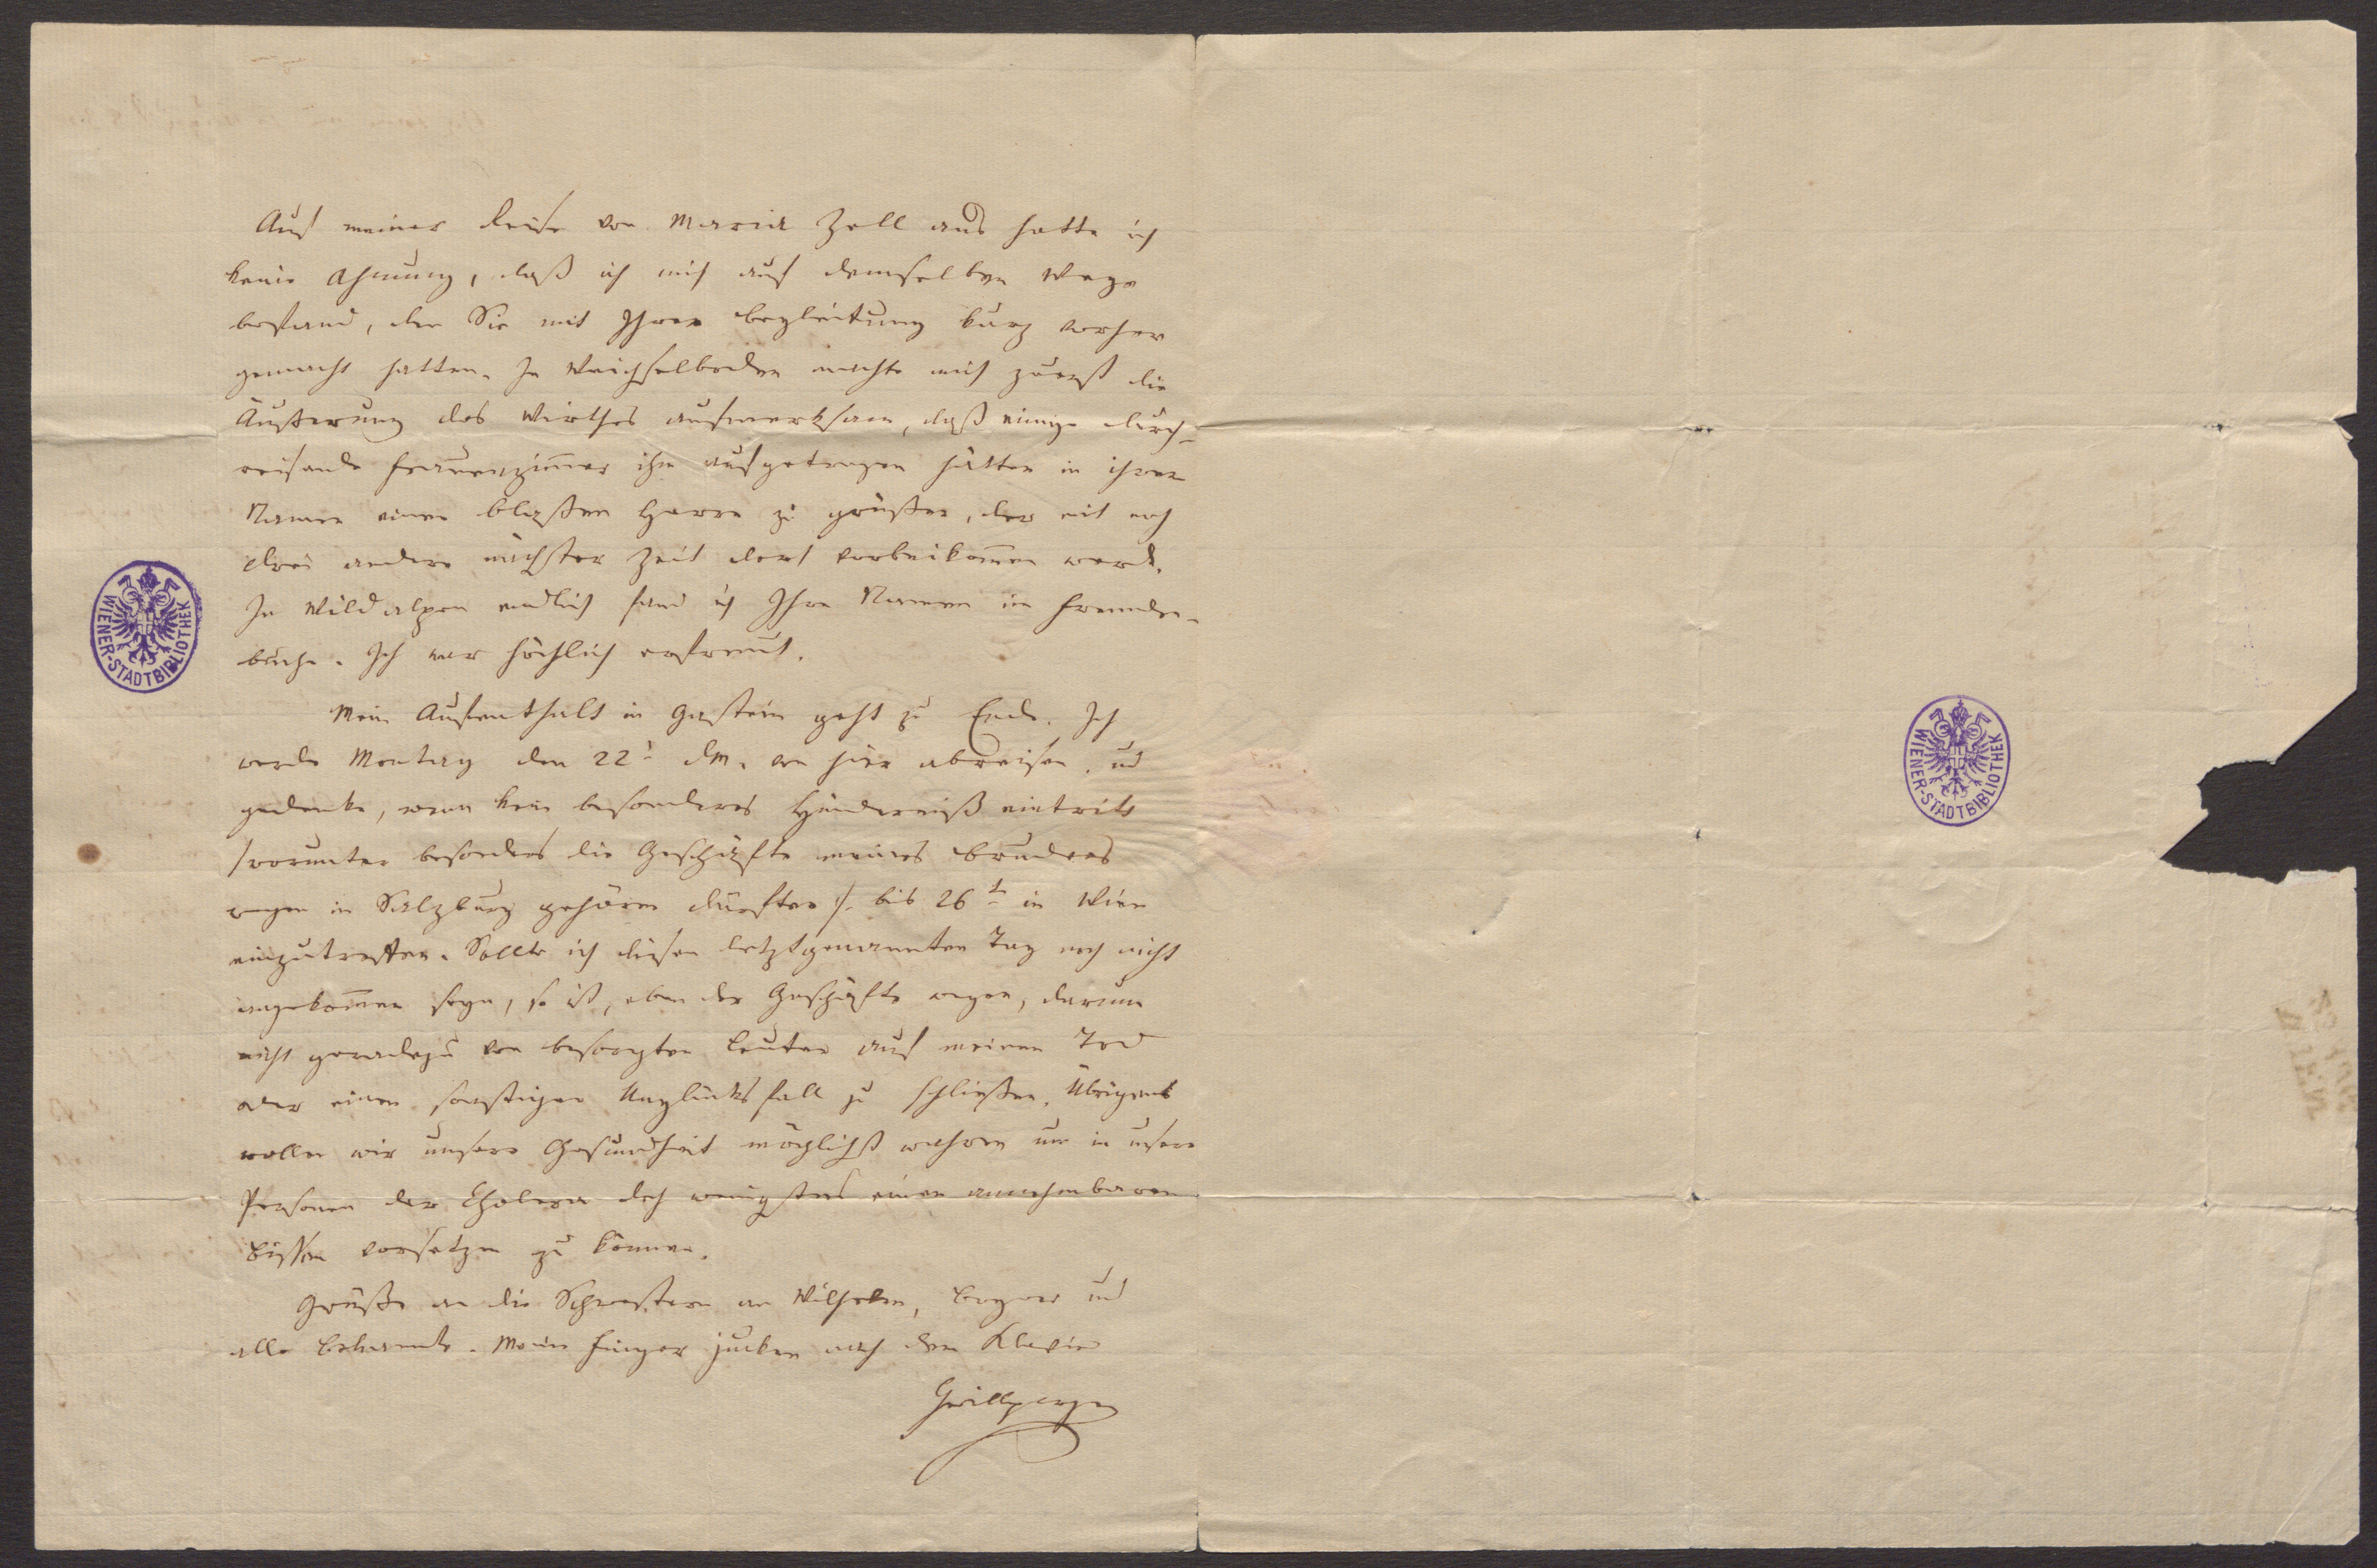 Auf meiner Reise von Maria Zell aus hatte ich
keine Ahnung, daß ich mich auf demselben Wege
befand, den Sie mit Ihrer Begleitung kurz vorher
gemacht hatten. In Weichselboden machte mich zuerst die
Äußerung des Wirthes aufmerksam, daß einige durch-
reisende Frauenzimmer ihm aufgetragen hätten in ihrem
Namen einen blaßen Herrn zu grüßen, der mit noch
drei andern nächster Zeit dort vorbeikommen werde.
In Wildalpen endlich fand ich Ihre Namen im Fremden-
buche. Ich war höchlich erfreut.
Mein Aufenthalt in Gastein geht zu Ende. Ich
werde Montag den 22t dM. von hier abreisen, und
gedenke, wenn kein besonderes Hinderniß eintritt
/worunter besonders die Geschäfte meines Bruders
wegen in Salzburg gehören dürften/. bis 26t in Wien
einzutreffen. Sollte ich diesen letztgenannten Tag noch nicht
angekommen seyn, so ist, eben der Geschäfte wegen, darum
nicht geradezu von besorgten Leuten auf meinen Tod
oder einen sonstigen Unglücksfall zu schließen. Übrigens
wollen wir unsere Gesundheit möglichst wahren um in unsern
Personen der Cholera doch wenigstens einen annehmbaren
Bissen vorsetzen zu können.
Grüße an die Schwestern an Wilhelm, Bogner und
alle Bekannte. Meine Finger jucken nach dem Klavier
Grillparzer
WIENER-STADTBIBLIOTHEK
WIENER-STADTBIBLIOTHEK